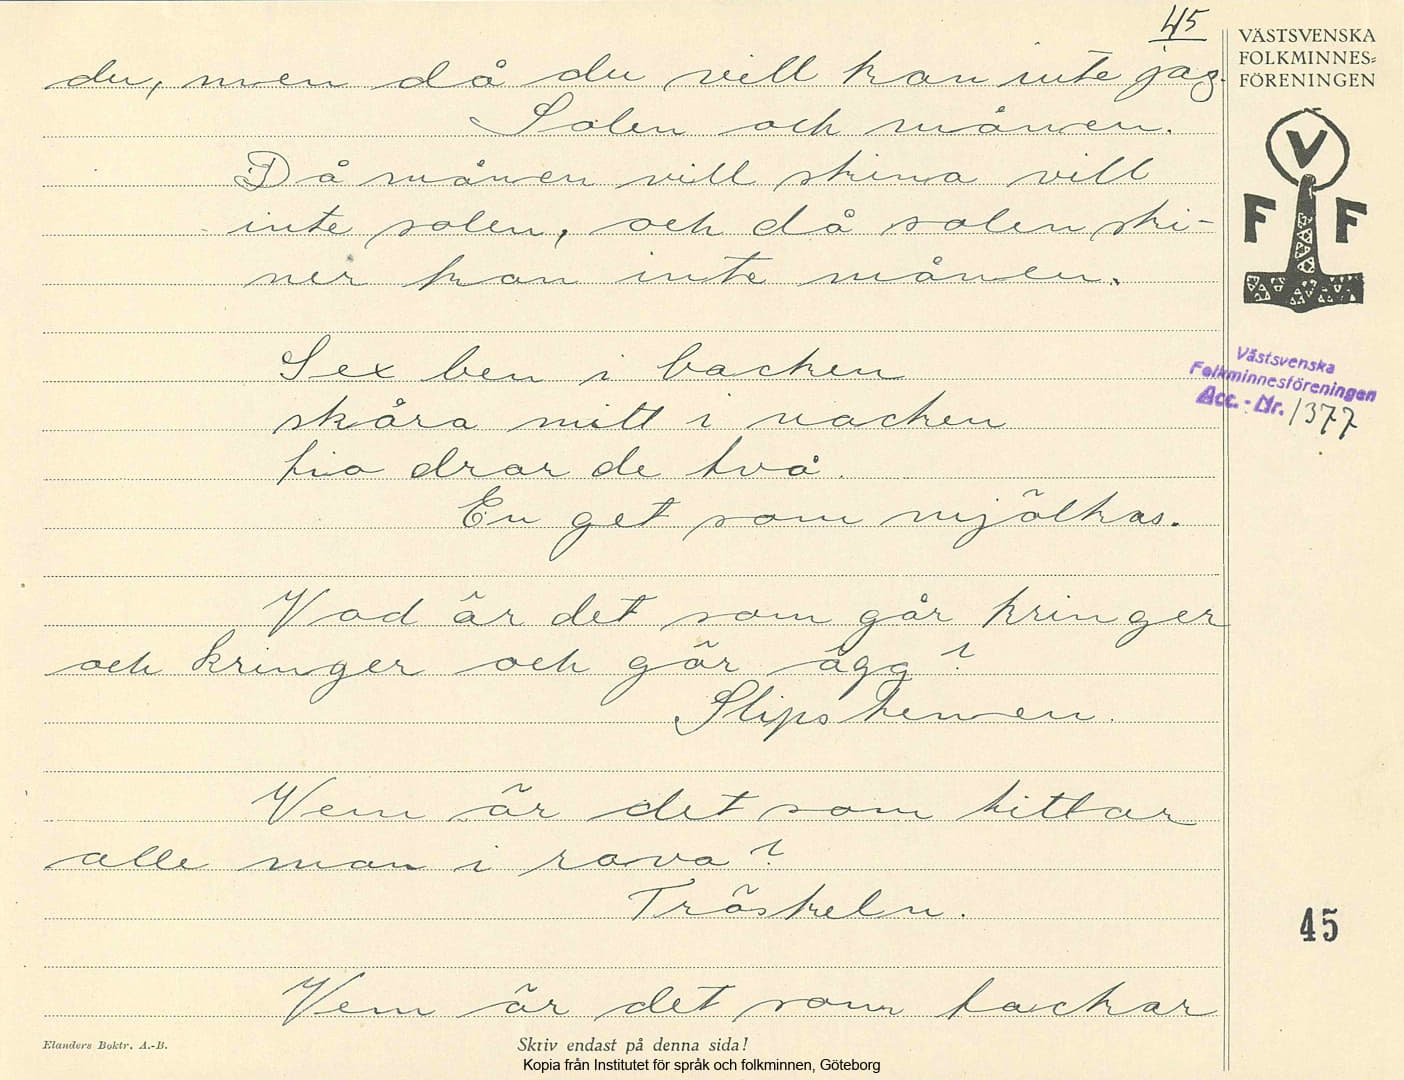 45
VÄSTSVENSKA
FOLKMINNES=
FÖRENINGEN
V
F F
du, men då du vill kan inte jag.
Solen och månen.
Då månen vill skina vill
inte solen, och då solen ski-
ner kan inte månen.
Västsvenska
Folkminnesföreningen
Acc.-Nr. 1377
Sex ben i backen
skåra mitt i nacken
fria drar de två.
En get som mjölkas.
Vad är det som går kringer
och kringer och gör ägg?
Slipstenen.
Vem är det som tittar
alle man i rava?
Tröskeln.
45
Vem är det som tackar
Elanders Boktr. A.-B.
Skriv endast på denna sida!
Kopia från Institutet för språk och folkminnen, Göteborg